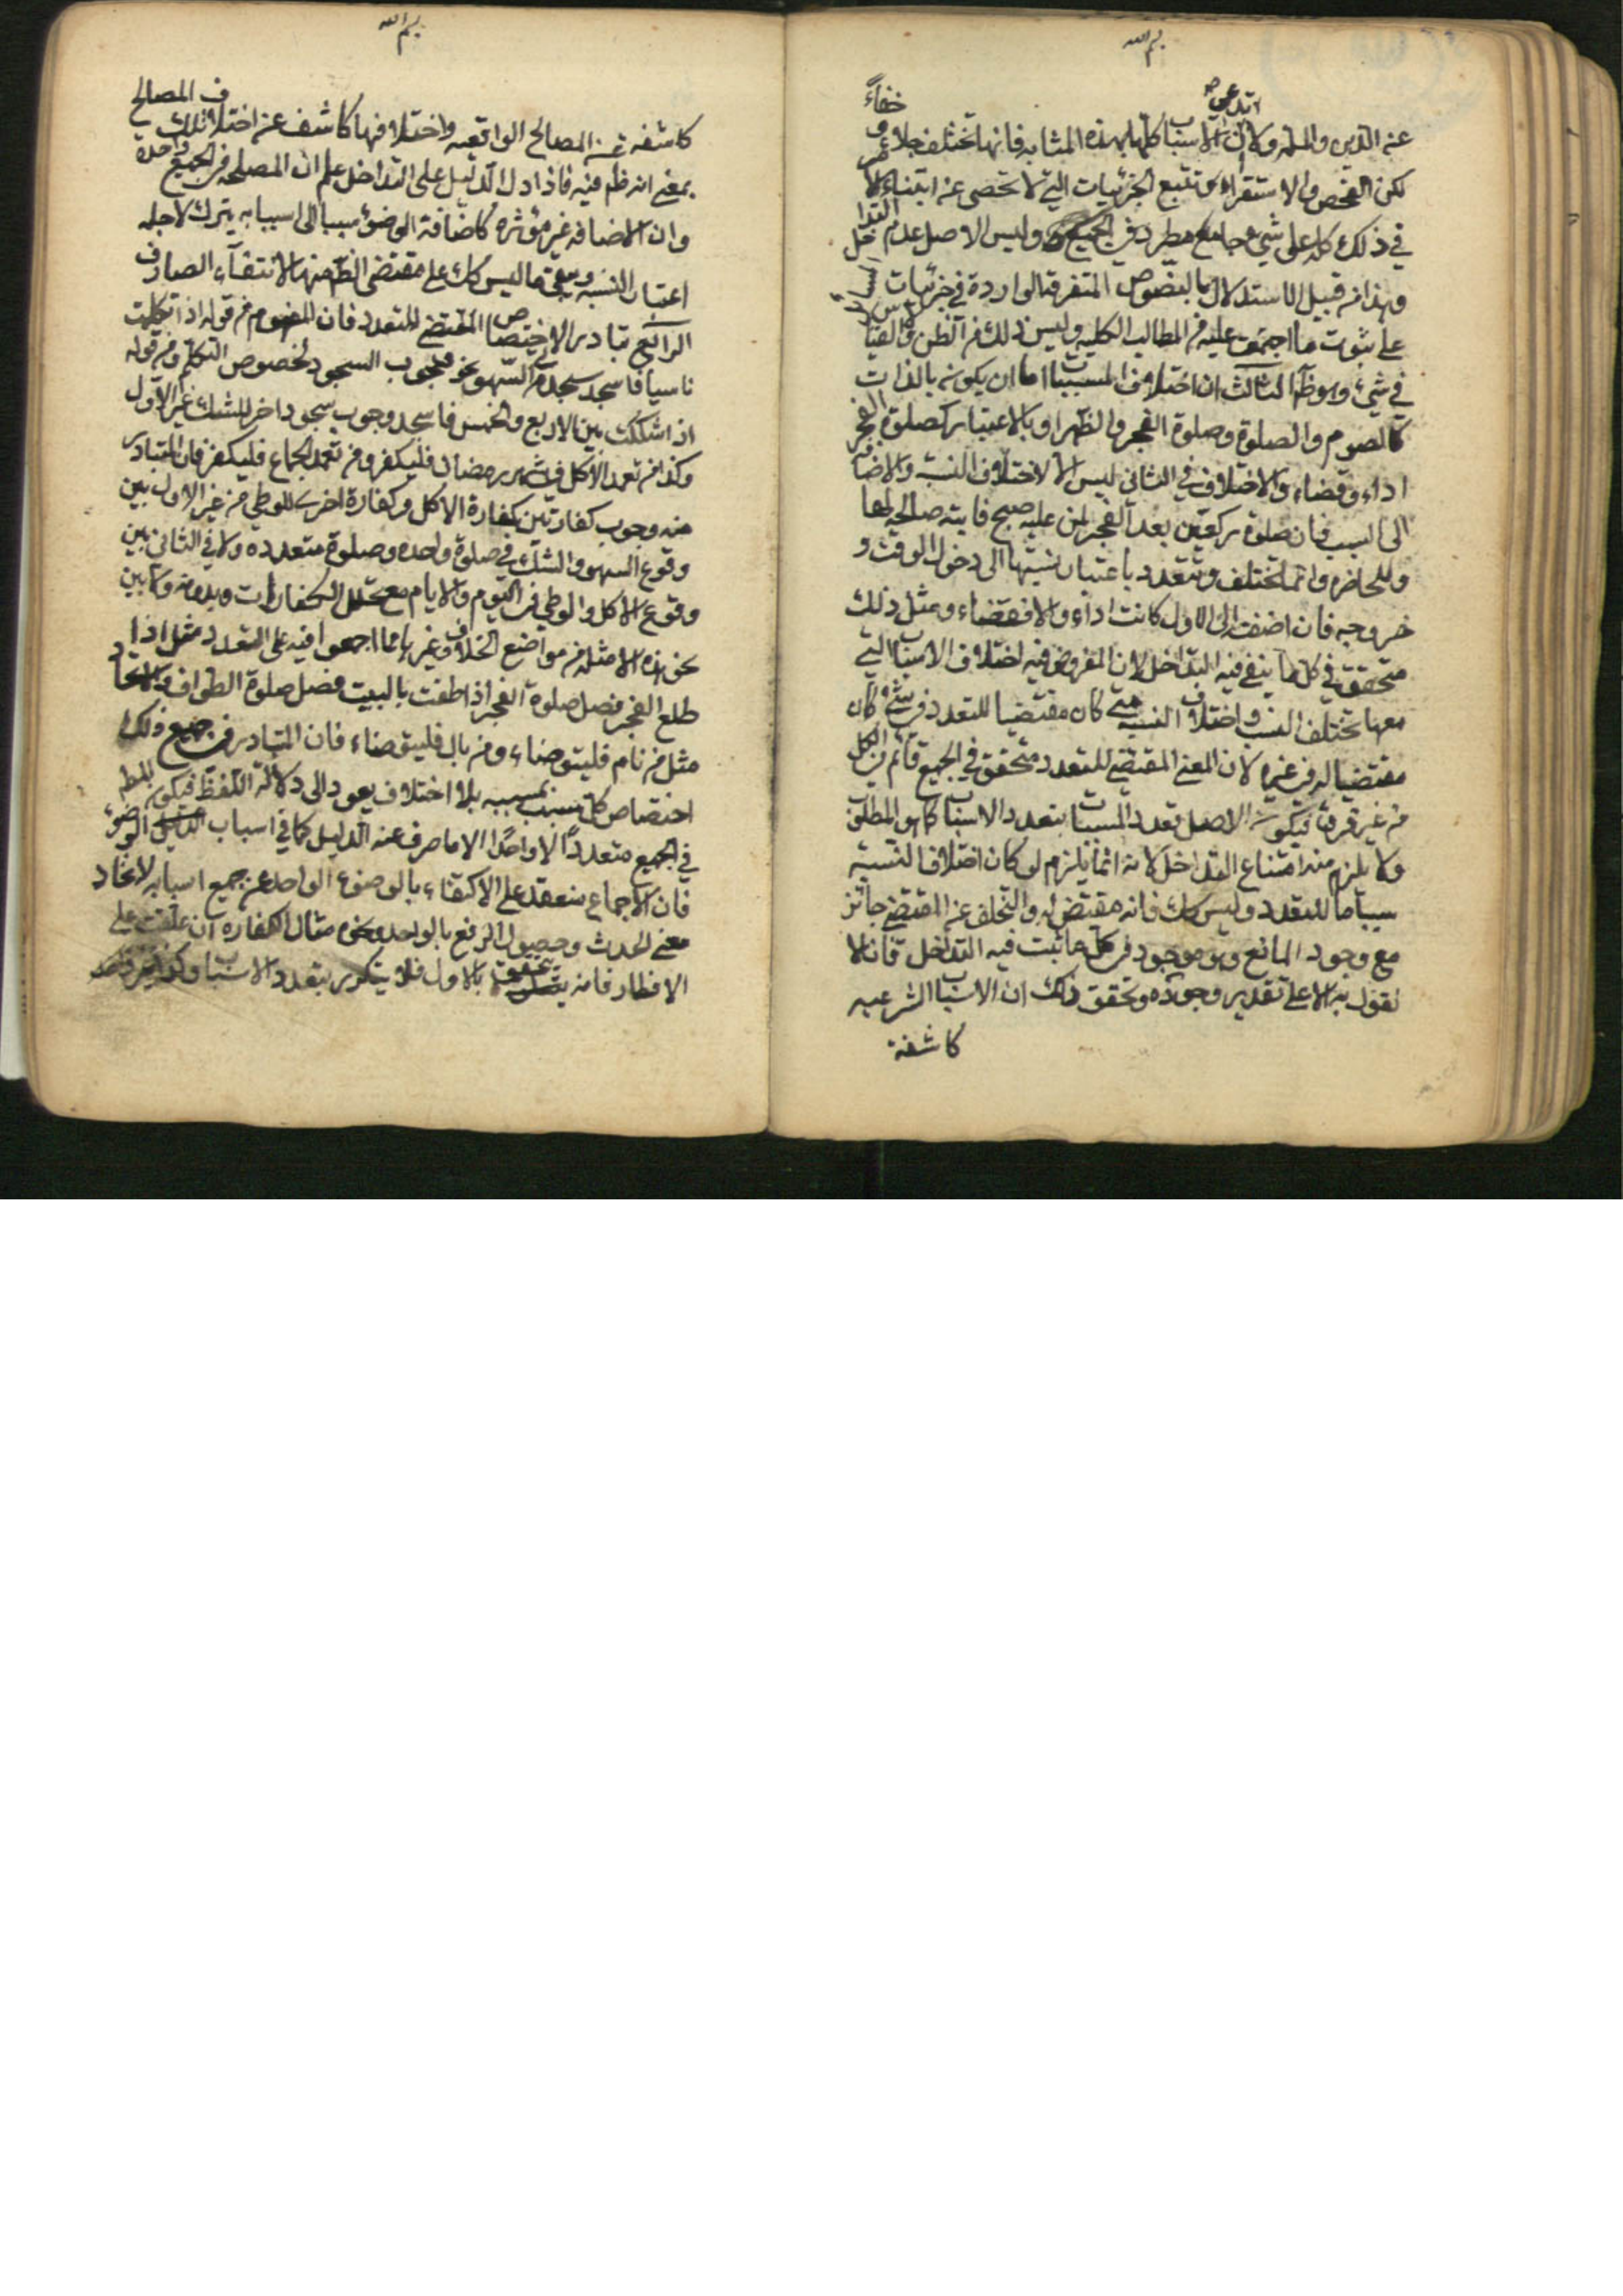 بسم الله
عن الدين والملة ولان الاسباب كلها بهذه المثابة فانها تختلف جلاء و خفاءً
لكن الفحص والاستقراء و تتبع الجزئيات التي لا تحصى عن ابتناء الامر
في ذلك كله على شيء جامع مطرد في الجميع وليس الا اصل عدم التداخل
وهذا من قبيل الاستدلال بالنصوص المتفرقة الواردة في جزئيات المسائل
على ثبوت ما اجتمعت عليه من المطالب الكلية وليس ذلك من الظن والقياس
في شيء وهو ظ الثالث ان اختلاف المسببات اما ان يكون بالذات
كالصوم والصلوة وصلوة الفجر والظهر او بالاعتبار كصلوة الفجر
اداء وقضاء والاختلاف في الثاني ليس الا لاختلاف النسب والاضافة
الى السبب فان صلوة ركعتين بعد الفجر لمن عليه صبح فايتة صالحة لها
وللحاضرة وانما تختلف وتتعدد باعتبار نسبتها الى دخول الوقت و
خروجه فان اضيفت الى الاول كانت اداء والا فقضاء ومثل ذلك
متحقق في كل ما ينفى فيه التداخل لان المفروض فيه اختلاف الاسباب التي
معها تختلف النسب واختلاف النسبة متى كان مقتضيا للتعدد في شيء كان
مقتضيا له في غيره لان المعنى المقتضي للتعدد متحقق في الجميع قائم في الكل
من غير فرق فيكون الاصل تعدد المسببات بتعدد الاسباب كما هو المطلوب
ولا يلزم منه امتناع التداخل لانه انما يلزم لو كان اختلاف النسبة
سببا تاما للتعدد وليس كك فانه مقتض له والتخلف عن المقتضي جائز
مع وجود المانع وهو موجود في كل ما ثبت فيه التداخل فانا لا
نقول به الا على تقدير وجوده وتحقق ذلك ان الاسباب الشرعية
كاشفة
بسم الله
كاشفة عن المصالح الواقعية واختلافها كاشف عن اختلاف تلك المصالح
بمعنى انه ظ فيه فاذا دل الدليل على التداخل علم ان المصلحة في الجميع واحدة
وان الاضافة غير مؤثرة كاضافة الوضوء سببا الى اسبابه يترك لاجله
اعتبار النسبة ويبقى ما ليس كك على مقتضى الظ منها لانتفاء الصارف
الرابع تبادر الاختصاص المقتضي للتعدد فان المفهوم من قوله اذا تكلمت
ناسيا فاسجد سجدتي السهو نحو وجوب السجود لخصوص التكلم ومن قوله
اذا شككت بين الاربع والخمس فاسجد وجوب سجود اخر للشك غير الاول
وكذا من تعمد الاكل في شهر رمضان فليكفر ومن تعمد الجماع فليكفر فان المتبادر
منه وجوب كفارتين كفارة الاكل وكفارة اخرى للوطي من غير الاول بين
وقوع السهو والشك في صلوة واحدة وصلوة متعددة ولا في الثاني بين
وقوع الاكل والوطي في اليوم والايام مع تخلل الكفارات وبدونه وكما بين
نحو هذه الامثلة من مواضع الخلاف وغيرها مما اجمعوا فيه على التعدد مثل اذا
طلع الفجر فصل صلوة الفجر اذا طفت بالبيت فصل صلوة الطواف
مثل من نام فليتوضاء ومن بال فليتوضاء فان المتبادر في جميع ذلك
اختصاص كل سبب بمسببه بلا اختلاف يعود الى دلالة اللفظ فيكون المط
في الجميع متعدداً لا واحدًا الا ما صرف عنه الدليل كما في اسباب الوضوء
فان الاجماع منعقد على الاكتفاء بالوضوء الواحد عن جميع اسبابه لاتحاد
معنى الحدث وحصول الرفع بالواحد ونحوه مثال الكفارة ان علقت على
الافطار فانه يتحقق بالاول فلا يتكرر بتعدد الاسباب